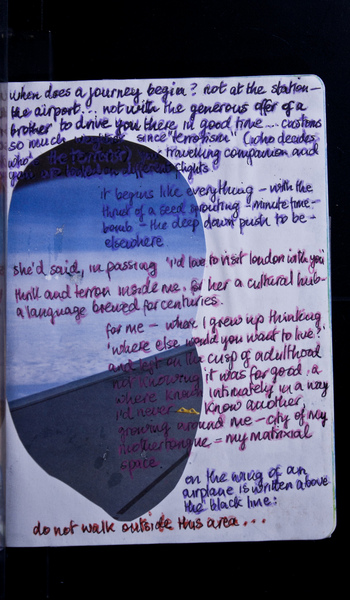 when does a journey begin? not at the station –
the airport... not with the generous offer of a
brother to drive you there in good time... customs
so much since "terrorism" (who decides
who's the terrorist) travelling companion and
you are on different flights
it begins like everything – with the
thrust of a seed sprouting – minute time-
bomb – the deep down push to be –
elsewhere
she'd said, in passing "i'd love to visit london with you"
thrill and terror inside me. for her a cultural hub –
a language brewed for centuries.
for me – where i grew up thinking
'where else would you want to live?'
and left on the cusp of adulthood
not knowing it was for good, a
where know intimately in a way
i'd never know another
growing around me – city of my
mothertongue = my matrixial
space.
on the wing of an
airplane is written above
the black line:
do not walk outside this area...